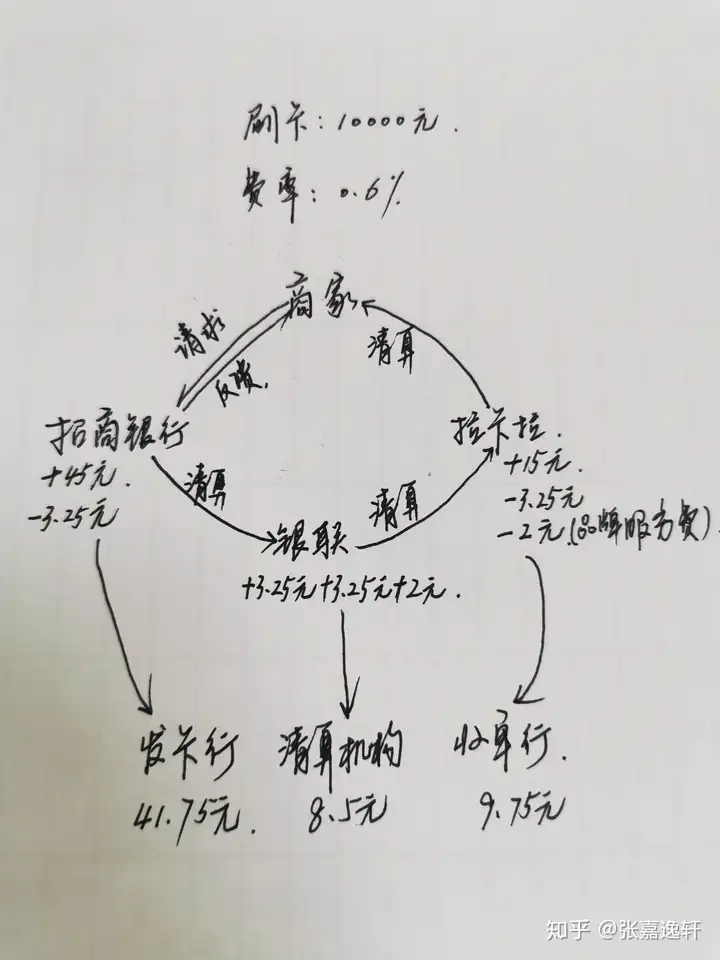 刷卡：10000元.
费率：0.6%
商家
请求
反馈.
清算
招商银行
+45元.
-3.25元
拉卡拉.
+15元.
-3.25元
-2元(品牌服务费).
清算
清算
银联
+3.25元+3.25元+2元.
发卡行
41.75元.
清算机构
8.5元
收单行.
9.75元
知乎 @张嘉逸轩